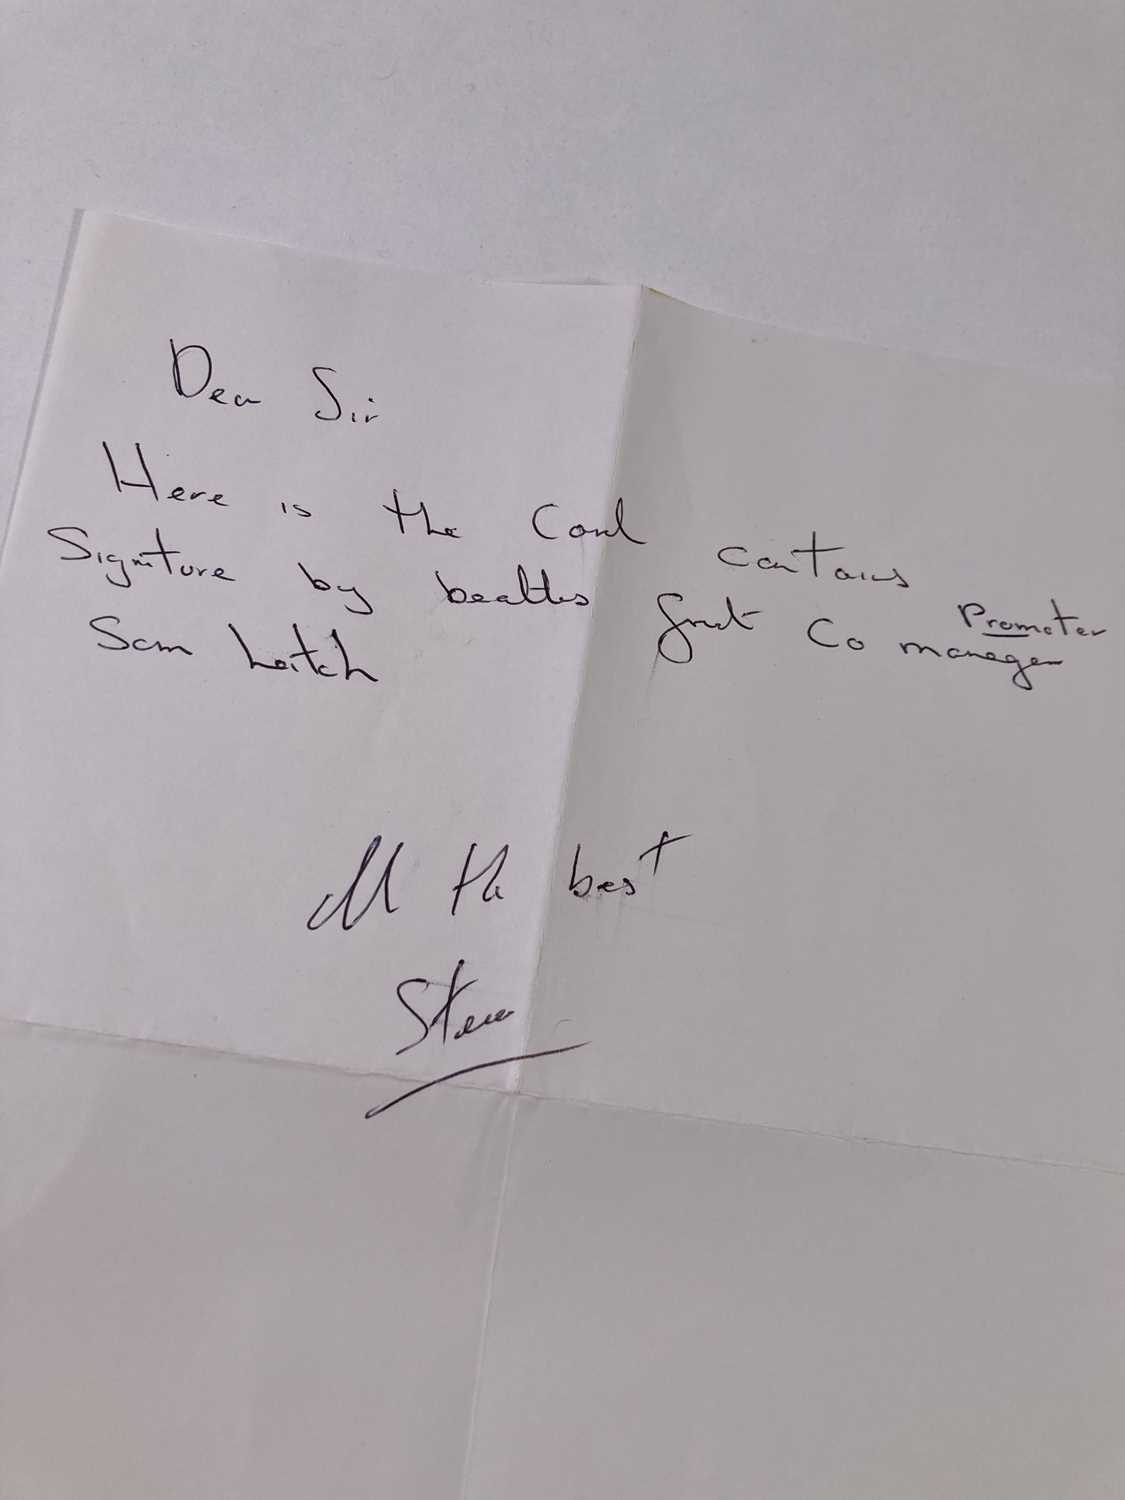 Dear Sir
Here is the Card contains
Signture by beatles first Co manager Promoter
Sam Leitch
All the best
Steve